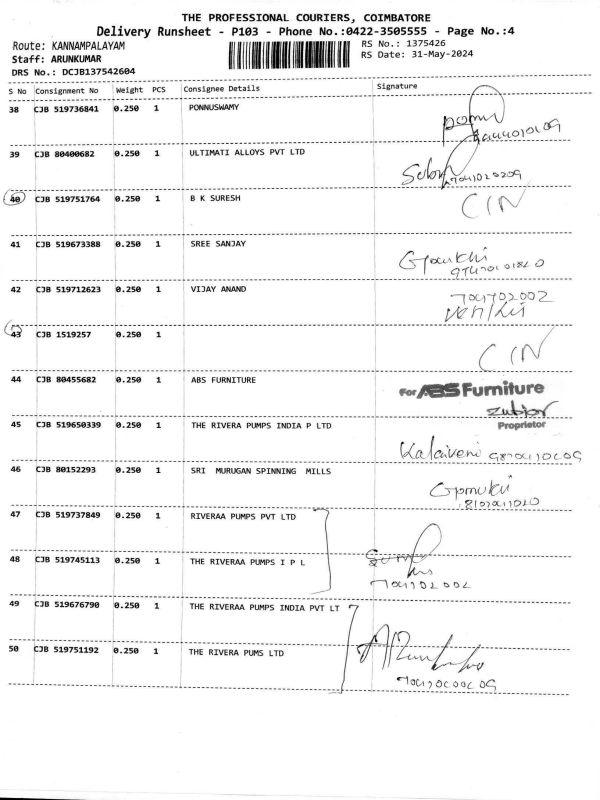 THE PROFESSIONAL COURIERS, COIMBATORE
Delivery Runsheet - P103 - Phone No.:0422-3505555 - Page No.:4
Route: KANNAMPALAYAM RS No.: 1375426
Staff: ARUNKUMAR RS Date: 31-May-2024
DRS No.: DCJB137542604
S No Consignment No Weight PCS Consignee Details Signature
38 CJB 519736841 0.250 1 PONNUSWAMY
39 CJB 80400682 0.250 1 ULTIMATI ALLOYS PVT LTD
40 CJB 519751764 0.250 1 B K SURESH CIN
41 CJB 519673388 0.250 1 SREE SANJAY
42 CJB 519712623 0.250 1 VIJAY ANAND
43 CJB 1519257 0.250 1 CIN
44 CJB 80455682 0.250 1 ABS FURNITURE For ABS Furniture
Proprietor
45 CJB 519650339 0.250 1 THE RIVERA PUMPS INDIA P LTD
46 CJB 80152293 0.250 1 SRI MURUGAN SPINNING MILLS
47 CJB 519737849 0.250 1 RIVERAA PUMPS PVT LTD
48 CJB 519745113 0.250 1 THE RIVERAA PUMPS I P L
49 CJB 519676790 0.250 1 THE RIVERAA PUMPS INDIA PVT LT
50 CJB 519751192 0.250 1 THE RIVERA PUMS LTD